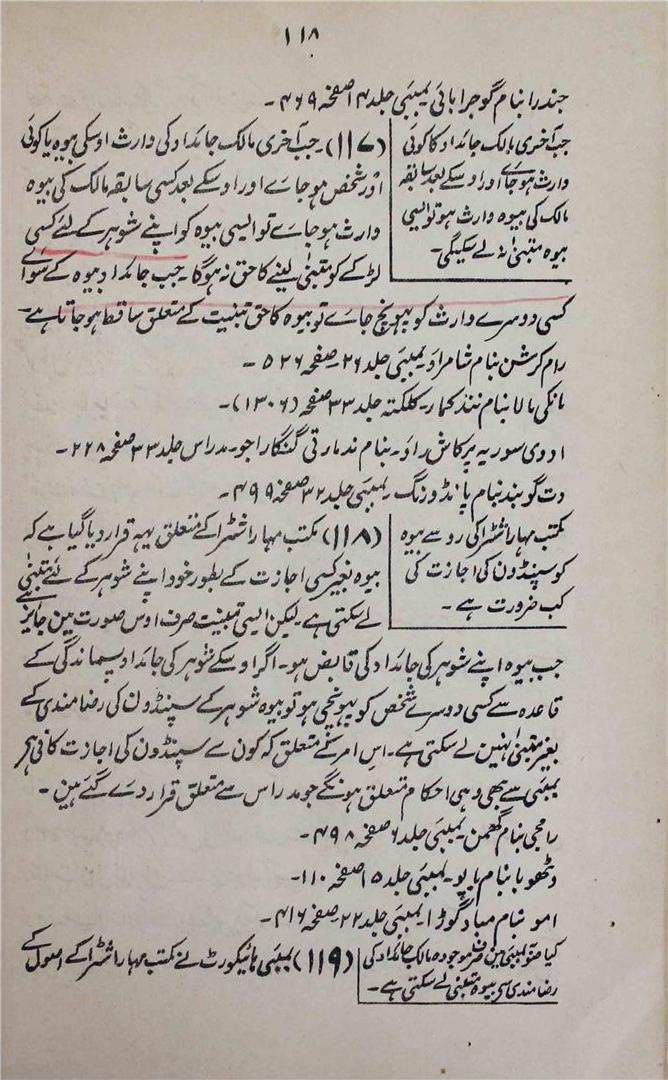 ۱۱۸
چندرا بنام گوجرابائی بمبئی جلد ۱۴ صفحہ ۴۶۹۔
جب آخری مالک جائداد کا کوئی
وارث ہو جاے اور اوسکے بعد سابقہ
مالک کی بیوہ وارث ہو تو ایسی
بیوہ متبنیٰ نہ لے سکیگی۔
(۱۱۷)۔ جب آخری مالک جائداد کی وارث اوسکی بیوہ یا کوئی
اور شخص ہو جاے اور اوسکے بعد کسی سابقہ مالک کی بیوہ
وارث ہو جاے تو ایسی بیوہ کو اپنے شوہر کے لئے کسی
لڑکے کو متبنیٰ لینے کا حق نہ ہوگا۔ جب جائداد بیوہ کے سواے
کسی دوسرے وارث کو پہونچ جاے تو بیوہ کا حق تبنیت کے متعلق ساقط ہو جاتا ہے۔
رام کرشن بنام شامراو بمبئی جلد ۲۶ صفحہ ۵۲۶۔
مانکی مالا بنام نند کمار۔ کلکتہ جلد ۳۳ صفحہ (۱۳۰۶)۔
ادوی سوریہ پرکاش راو۔ بنام ندمارتی گنگاراجو۔ مدراس جلد ۳۳ صفحہ ۲۲۸۔
دت گوبند بنام پانڈورنگ۔ بمبئی جلد ۳۲ صفحہ ۴۹۹۔
مکتب مہاراشٹرا کی رو سے بیوہ
کو سپنڈون کی اجازت کی
کب ضرورت ہے۔
(۱۱۸) مکتب مہاراشٹرا کے متعلق یہہ قرار دیا گیا ہے کہ
بیوہ بغیر کسی اجازت کے بطور خود اپنے شوہر کے لئے متبنیٰ
لے سکتی ہے۔ لیکن ایسی تبنیت صرف اوس صورت مین جایز ہے
جب بیوہ اپنے شوہر کی جائداد کی قابض ہو۔ اگر اوسکے شوہر کی جائداد پسماندگی کے
قاعدہ سے کسی دوسرے شخص کو پہونچی ہو تو بیوہ شوہر کے سپنڈون کی رضامندی کے
بغیر متبنیٰ نہین لے سکتی ہے۔ اس امر کے متعلق کہ کون سے سپنڈون کی اجازت کافی ہے
بمبئی سے بھی وہی احکام متعلق ہونگے جو مدراس سے متعلق قرار دے گئے ہین۔
رامجی بنام گھمن۔ بمبئی جلد ۶ صفحہ ۴۹۸۔
وٹھوبا بنام باپو۔ بمبئی جلد ۱۵ صفحہ ۱۱۰۔
امو بنام مہادگوڑا۔ بمبئی جلد ۲۲۔ صفحہ ۴۱۶۔
کیا صوبہ بمبئی مین صرف موجودہ مالک جائداد کی
رضامندی سے بیوہ متبنیٰ لے سکتی ہے۔
(۱۱۹) بمبئی ہائیکورٹ نے مکتب مہاراشٹرا کے اصول کے